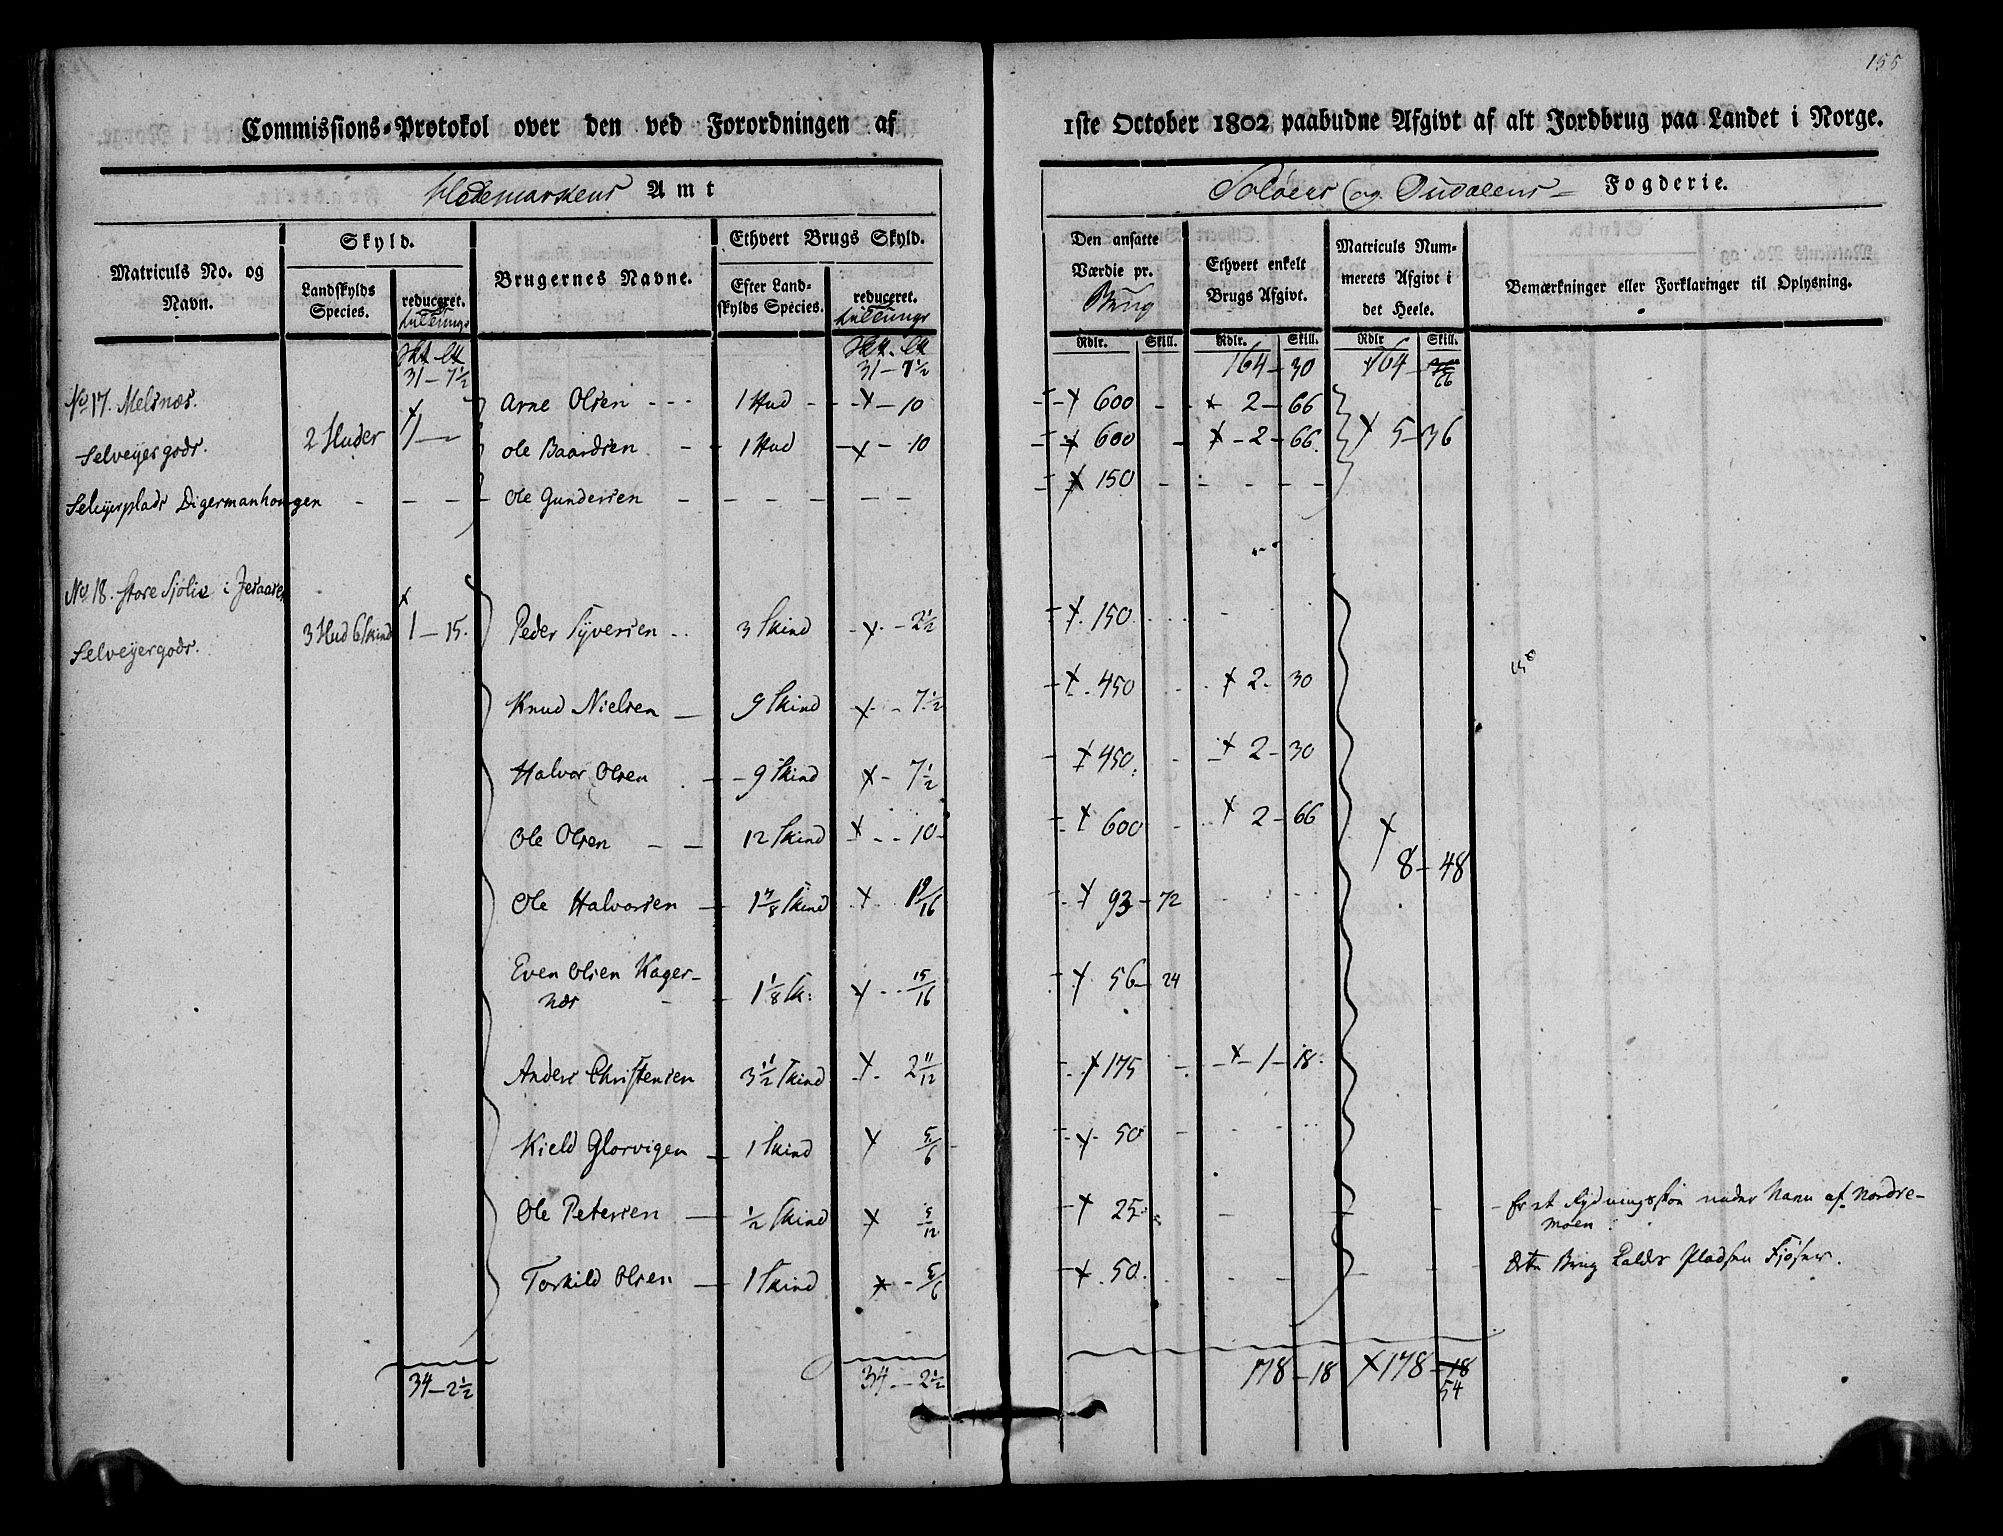 155
Commissions-Protokol over den ved Forordningen af 1ste October 1802 paabudne Afgivt af alt Jordbrug paa Landet i Norge.
Hedemarkens Amt
Soløers og Oudalens Fogderie.
Matriculs No. og Navn.
Skyld.
Landskylds Species.
reduceret.
Brugernes Navne.
Ethvert Brugs Skyld.
Efter Landskylds Species.
reduceret.
Den ansatte Værdie pr. Brug
Ethvert enkelt Brugs Afgivt.
Matriculs Nummerets Afgivt i det Heele.
Bemærkninger eller Forklaringer til Oplysning.
Rdlr. Skill. Rdlr. Skill. Rdlr Skill.
31 - 7½ 31 - 7½ 164 - 30 164 - 66
No 17. Melsnæs. Arne Olsen - - - 1 Hud - - x - 10 x 600 - x 2 - 66
Selveyergods. 2 Huder 1 - Ole Baardsen - - 1 Hud - x - 10 x 600 - x - 2 - 66 x 5 - 36
Selveyerplads Digermanhougen - - - Ole Gundersen - - - - - x 150 - - - -
No 18. Store Sjølie i
Selveyergods. 3 Hud 6 Skind x 1 - 15. Peder Syversen - . 3 Skind - x - 2½ x 150
Knud Nielsen - 9 Skind x - 7½ x 450 x 2 - 30
Halvor Olsen - 9 Skind x - 7½ x 450 x 2 - 30
Ole Olsen - - 12 Skind x - - 10 x 600 x 2 - 66
x 8 - 48
Ole Halvorsen - 1⅞ Skind x 1 9/16 x 93 - 72
Even Olsen Kagernæs - 1⅛ Sk: x - 15/16 x 56 - 24
Anders Christensen 3½ Skind x 2 11/12 x 175 x - 1 - 18
Kield Glorvigen - 1 Skind x 5/6 x 50
Ole Petersen - ½ Skind x 5/12 x 25 Er et Rydningsstøe under Navn af Nordremoen
Torkild Olsen - 1 Skind x - 5/6 x 50 Dette Brug kaldes Pladsen Fjøser.
34 - 2½ 34 - 2½ 178 - 18 x 178 - 18
54